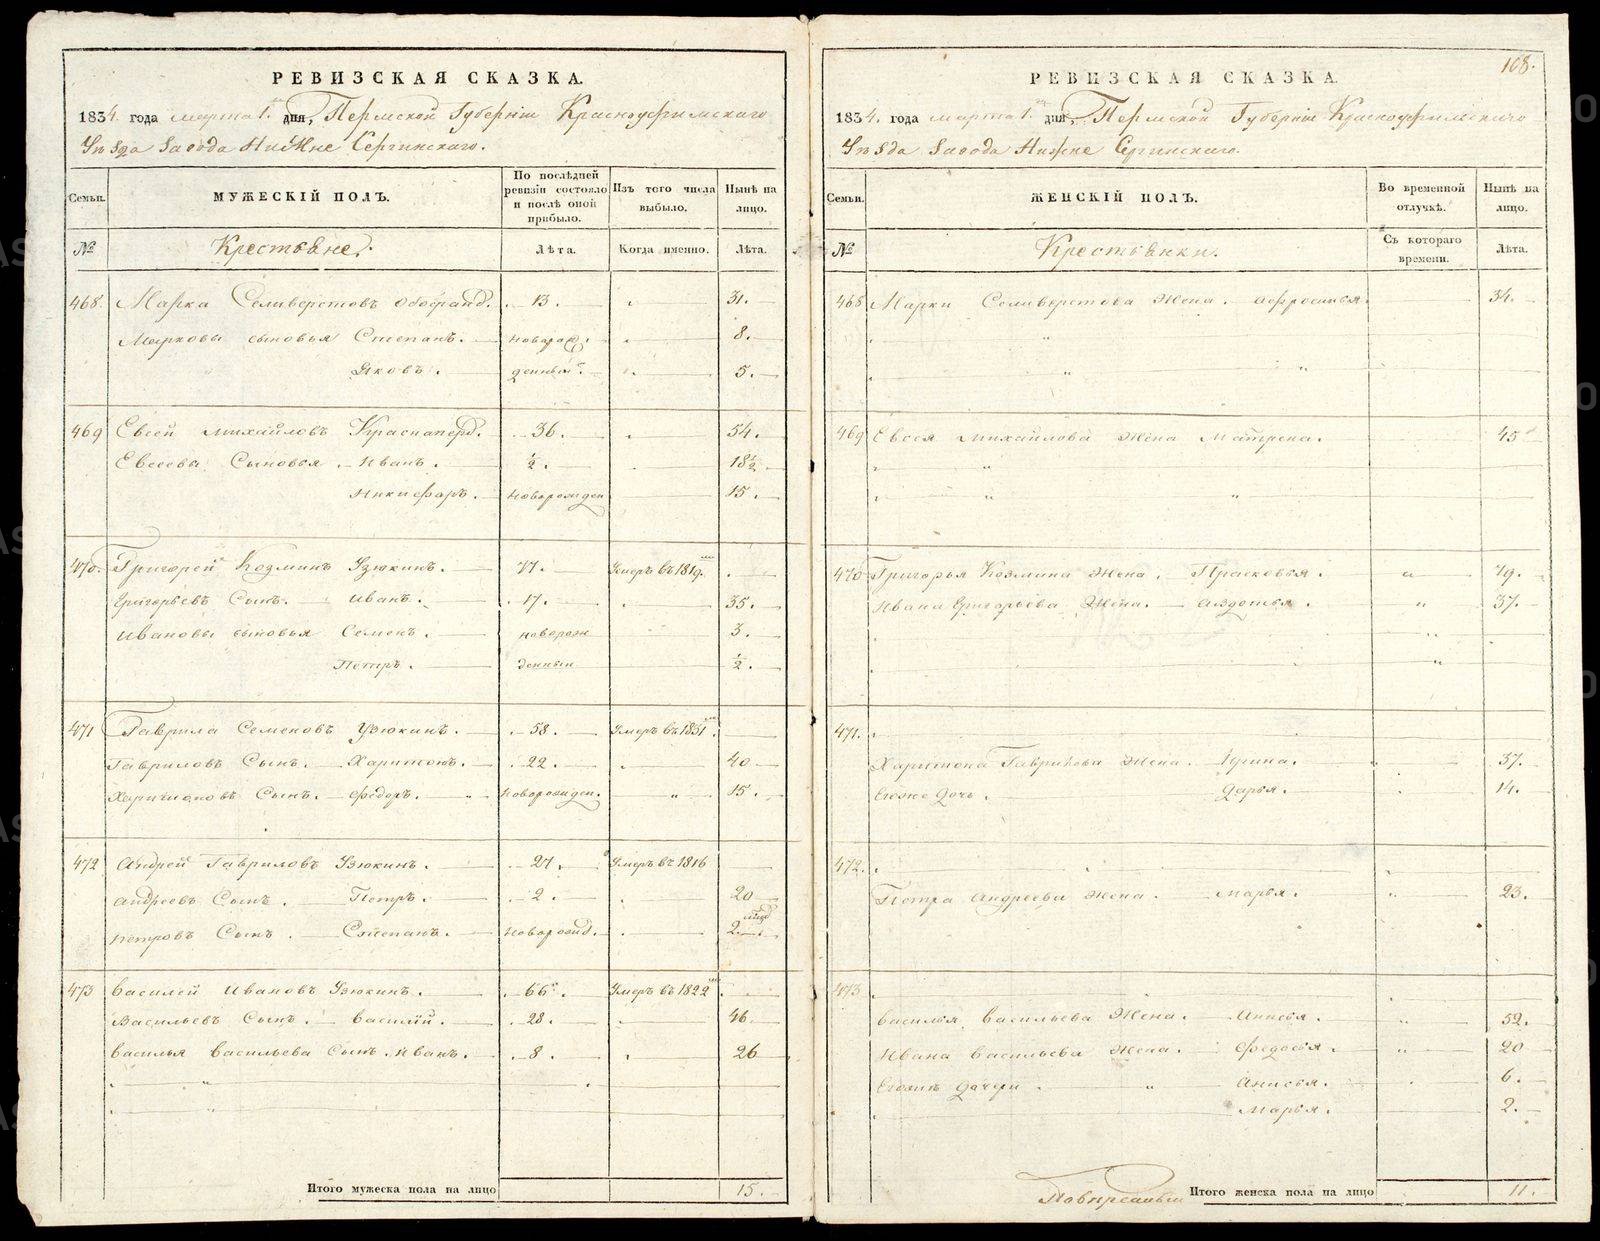 РЕВИЗСКАЯ СКАЗКА.
1834. года марта 1. дня, Пермской Губернии Красноуфимского
Уѣзда Завода Нижне Сергинскаго.
Семьи. МУЖЕСКІЙ ПОЛЪ. По послѣдней ревизіи состояло и послѣ оной прибыло. Изъ того числа выбыло. Нынѣ на лицо.
№ Крестьяне. Лѣта. Когда именно. Лѣта.
468 Марка Селиверстовъ 13. 31.
Марковы сыновья Степанъ. новорож. 8.
Яковъ. денныи 5.
469 Евсей Михайловъ 36. 54.
Евсеевы Сыновья Иванъ. ½. 18½
Никифоръ. новорожден 15.
470. Григорей Козминъ Узюкинъ. 77. Умеръ въ 1819.
Григорьевъ Сынъ. Иванъ. 17. 35.
Ивановы сыновья Семенъ. новорож 3.
Петръ. денныи ½.
471 Гаврила Семеновъ Узюкинъ. 58. Умеръ въ 1831.
Гавриловъ Сынъ. Харитонъ. 22. 40
Харитоновъ Сынъ. Федоръ. новорожден. 15.
472 Андрей Гавриловъ Узюкинъ. 27. Умеръ въ 1816
Андреевъ Сынъ. Петръ. 2. 20
Петровъ Сынъ. Степанъ. новорожд. 2.
473 Василей Ивановъ Узюкинъ. 66. Умеръ въ 1822
Васильевъ Сынъ. Василій. 28. 46
Василья Васильева Сынъ. Иванъ. 8. 26
Итого мужеска пола на лицо 15.
168.
РЕВИЗСКАЯ СКАЗКА.
1834. года марта 1. дня, Пермской Губерніи Красноуфимскаго
Уѣзда Завода Нижне Сергинскаго.
Семьи. ЖЕНСКІЙ ПОЛЪ. Во временной отлучкѣ. Нынѣ на лицо.
№ Крестьянки. Съ котораго времени. Лѣта.
468 Марки Селиверстова Жена. Афросинья. 34.
469 Евсея Михайлова Жена Матрена. 45
470 Григорья Козмина Жена. Прасковья. 79.
Ивана Григорьева Жена. Авдотья. 37.
471.
Харитона Гаврилова Жена. Ирина. 37.
Егоже дочь. Дарья. 14.
472.
Петра Андреева Жена. Марья. 23.
473
Василья Васильева Жена. Анисья. 52.
Ивана Васильева Жена. Федосья. 20
дочери Анисья. 6.
Марья. 2.
Итого женска пола на лицо 11.